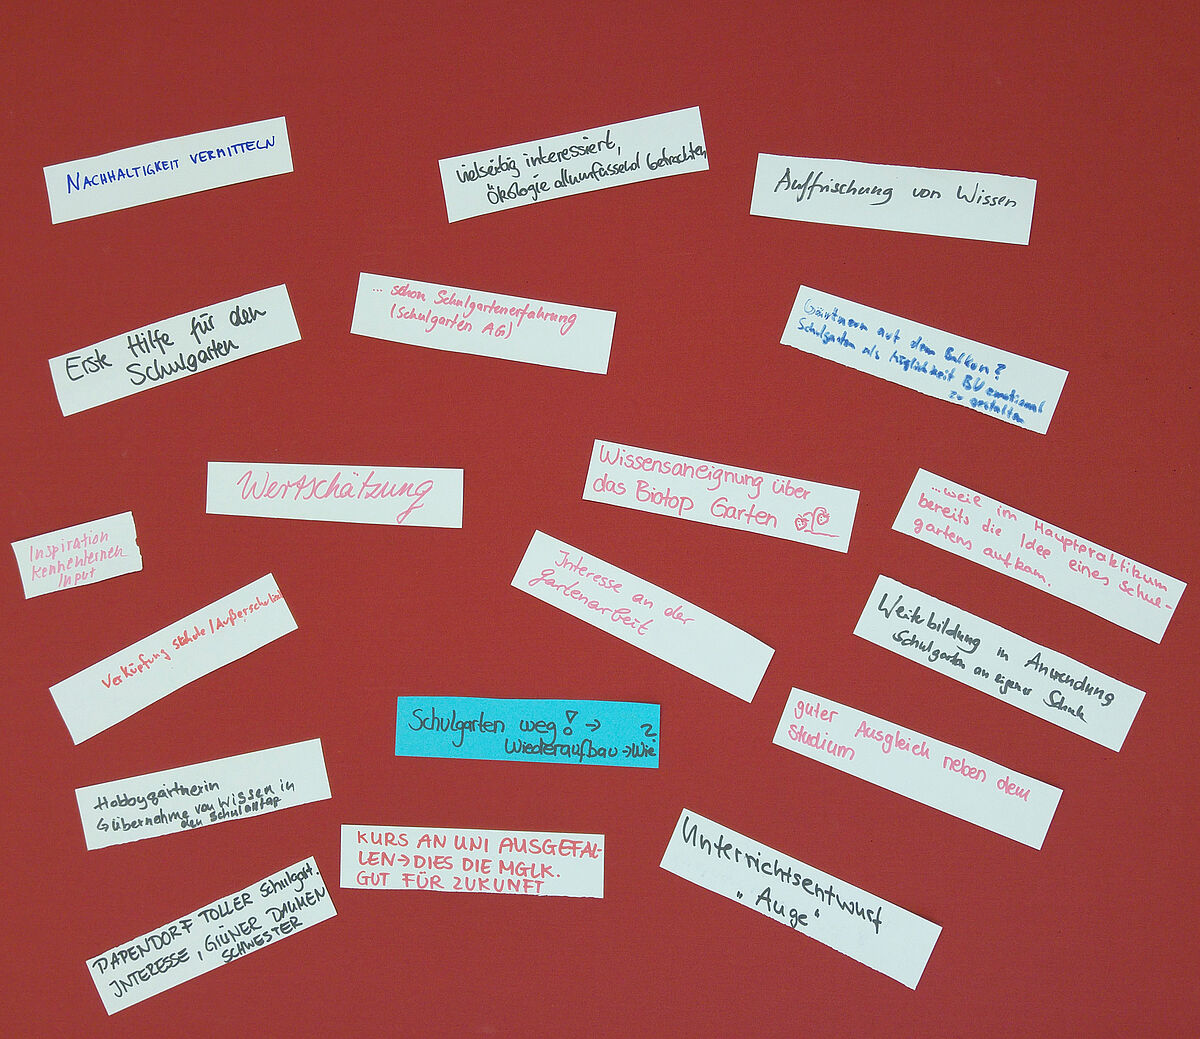 NACHHALTIGKEIT VERMITTELN
vielseitig interessiert,
Ökologie allumfassend betrachten
Auffrischung von Wissen
Erste Hilfe für den
Schulgarten
... schon Schulgartenerfahrung
(Schulgarten AG)
Gärtnern auf dem Balkon?
Schulgarten als Möglichkeit BU emotional
zu gestalten
Wertschätzung
Wissensaneignung über
das Biotop Garten
...weil im Hauptpraktikum
bereits die Idee eines Schul-
gartens aufkam.
Inspiration
Kennenlernen
Input
Interesse an der
Gartenarbeit
Weiterbildung in Anwendung
Schulgarten an eigener Schule
Verküpfung schule/Außerschulisch
Schulgarten weg! → ?
Wiederaufbau → Wie
guter Ausgleich neben dem
Studium
Hobbygärtnerin
Gübernahme von Wissen in
den Schulalltag
KURS AN UNI AUSGEFAL-
LEN → DIES DIE MGLK.
GUT FÜR ZUKUNFT
Unterrichtsentwurf
"Auge"
PAPENDORF TOLLER Schulgart.
INTERESSE, GRÜNER DAUMEN
SCHWESTER